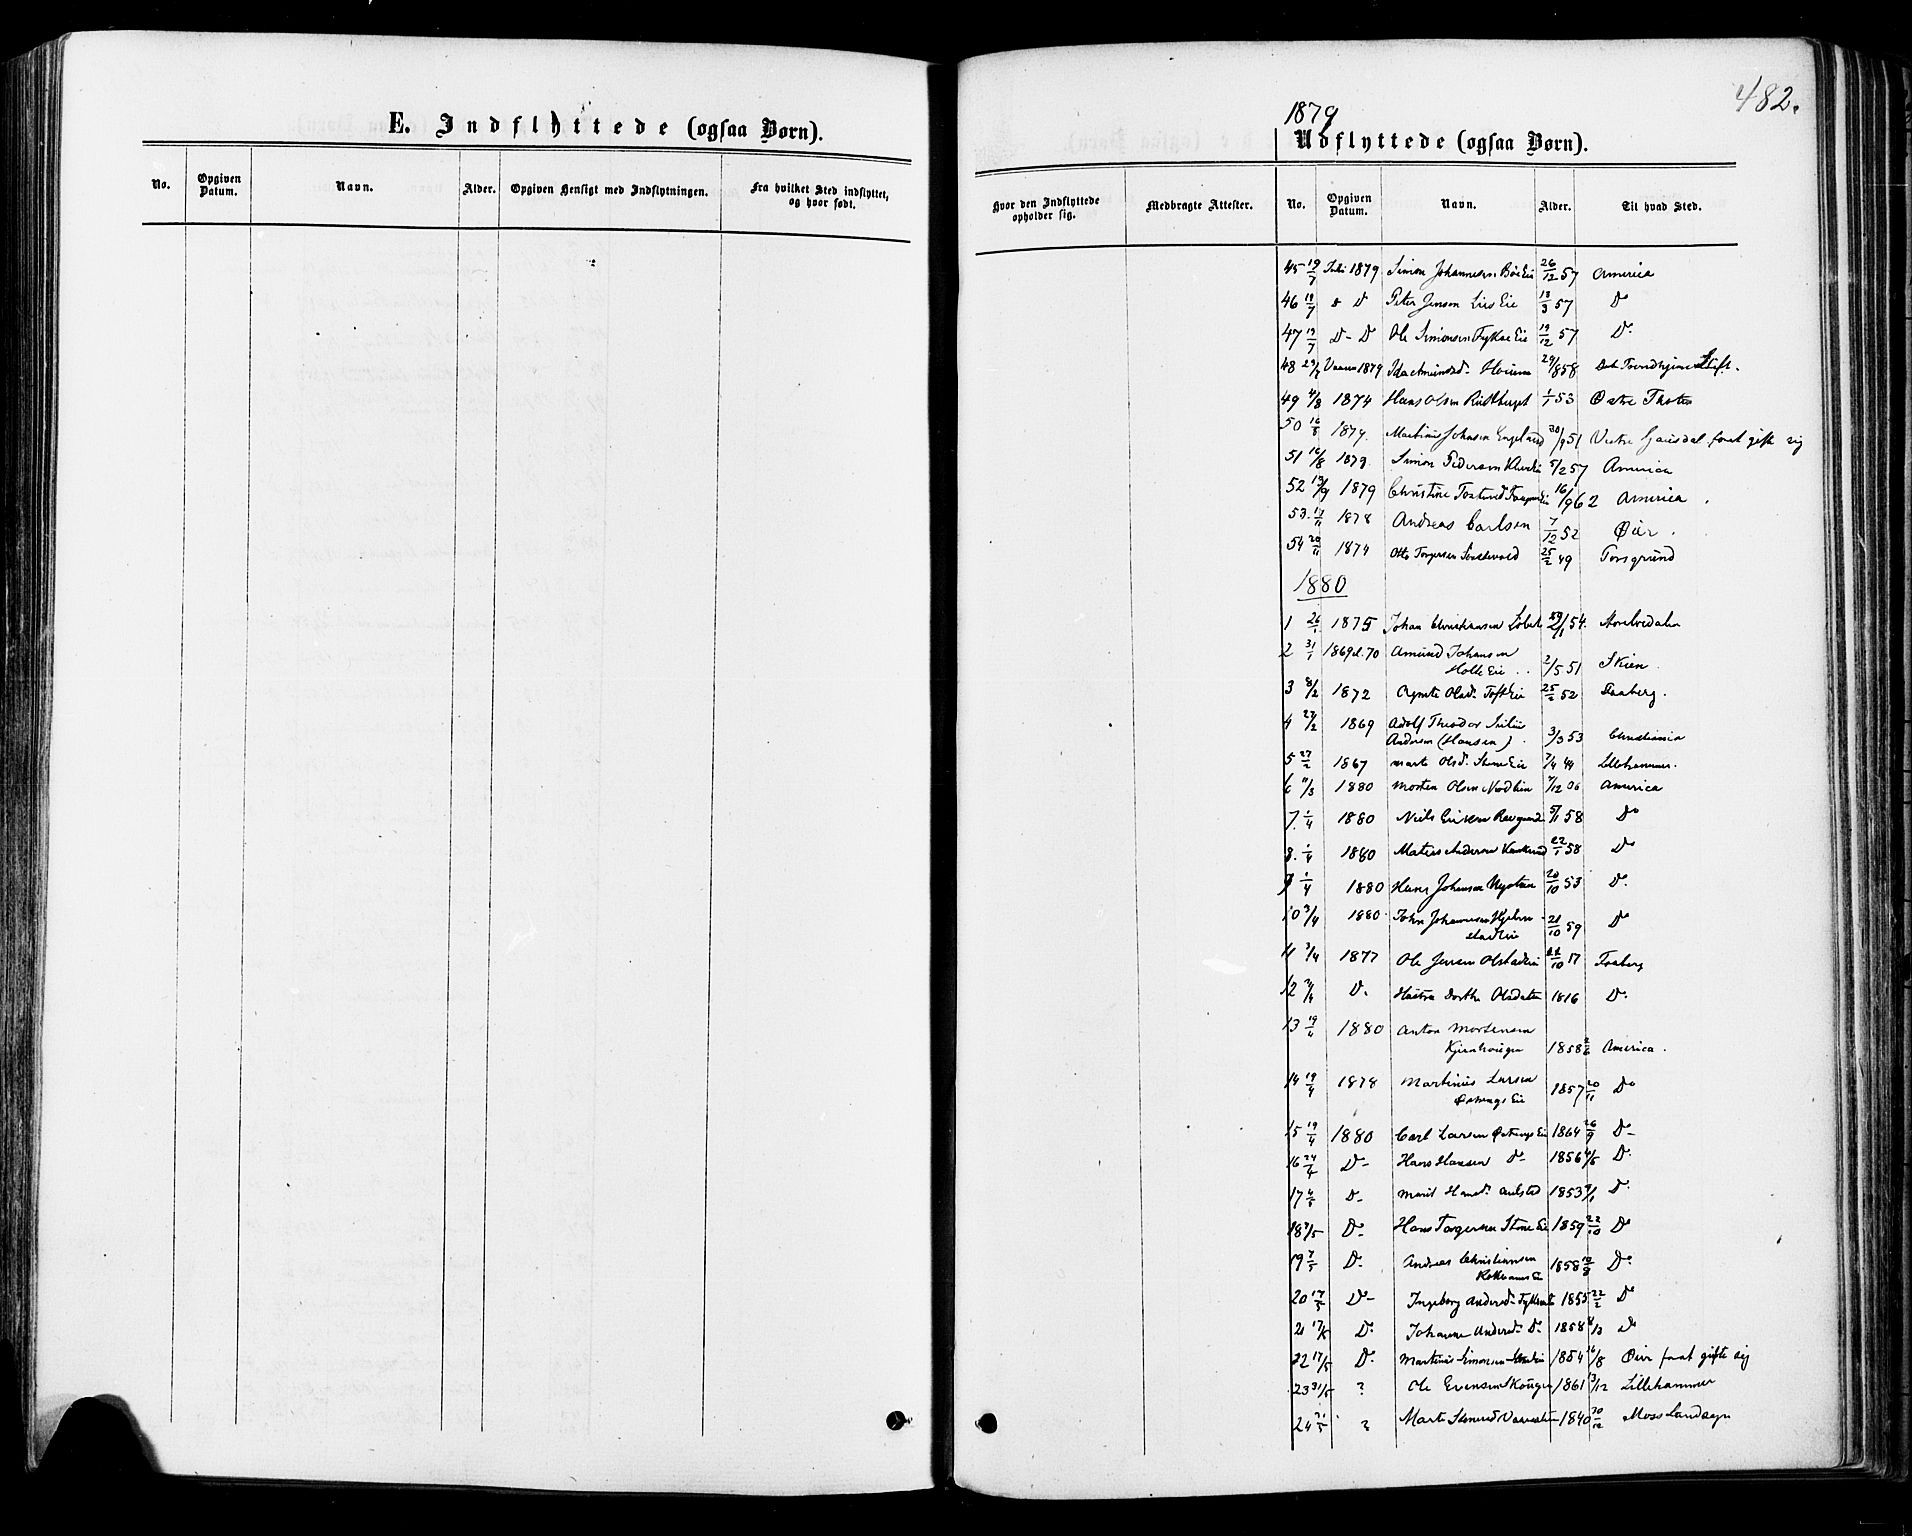 E. Indflyttede (ogsaa Børn).
No.
Opgiven Datum.
Navn.
Alder.
Opgiven Hensigt med Indflytningen.
Fra hvilket Sted indflyttet, og hvor født.
482.
1879
Udflyttede (ogsaa Børn).
Hvor den Indflyttede opholder sig.
Medbragte Attester.
No.
Opgiven Datum.
Navn.
Alder.
Til hvad Sted.
45 19/7 Juli 1879 Simon Johannesen Bøe Eie 26/12 57 America
46 19/7 D Peter Jensen Lies Eie 18/3 57 Do
47 19/7 D- D Ole Simonsen Fykse Eie 19/12 57 Do
48 29/7 Vaaren 1879 29/8 58 Det Trondhjemske Stift.
49 4/8 1874 Hans Olsen 1/1 53 Østre Thoten
50 16/8 1879. Martinus Johnsen Engeland 30/9 51 Vestre Gausdal for at gifte sig
51 16/8 1879 Simon Pedersen 5/2 57 America
52 13/9 1879 Christine 16/9 62 America.
53. 17/11 1878 Andreas Carlsen 7/12 52 Øier.
54 20/11 1874 Otto Torgersen 25/2 49 Porsgrund
1880
1 26/1 1875 Johan Christiansen 54.
2 31/1 1869 el. 70 Amund Johansen
Holte Eie 2/5 51 Skien.
3 8/2 1872 Agnete Olsd. Toft Eie 25/2 52 Faaberg.
4 27/2 1869 Adolf Theodor Julius
Andersen (Hansen) 3/3 53 Christiania
5 27/2 1867 Marte Olsd. Stene Eie 7/4 44 Lillehammer.
6 11/3 1880 Morten Olsen Nordlien 7/12 06 America
7. 1/4 1880 Niels Eriksen 5/1 58 Do
8. 1/4 1880 Matias Andersen 22/1 58 Do
9 1/4 1880 Hans Johansen Nystuen 20/10 53 Do.
10 3/4 1880 John Johannesen Hjelmstadeie 21/10 59 Do
11 3/4 1877 Ole Jensen Olstadeie 10 17 Faaberg
12 3/4 D. Hustru Dorthe Olsdatter 1816 Do.
13 19/4 1880 Anton Mortensen
Kjernhougen 1858 2/6 America.
14 19/4 1878 Martinus Larsen
Østengs Eie 1857 20/11 Do
15 19/4 1880 Carl Larsen Østengs Eie 1864 26/9 Do
16 24/4 D- Hans Hansen Do 1856 4/5 Do.
17 4/5 D- Marit Hansd. Aulstad 1853 9/1 Do.
18 7/5 D- Hans Torgersen Stene Eie 1859 22/10 Do
19 7/5 D. Andreas Christiansen
1858 10/8 Do.
20 17/5 D- Ingeborg Andersd. 1855 22/2 Do
21 17/5 D. Johanne Andersd. Do. 1858 4/3 Do
22 17/5 D. Martinus Simonsen 1854 16/8 Øier for at gifte sig
23 31/5 ? Ole Evensen Skougen 1861 3/12 Lillehammer
24 31/5 ? Marte 1840 30/12 Moss Landsogn